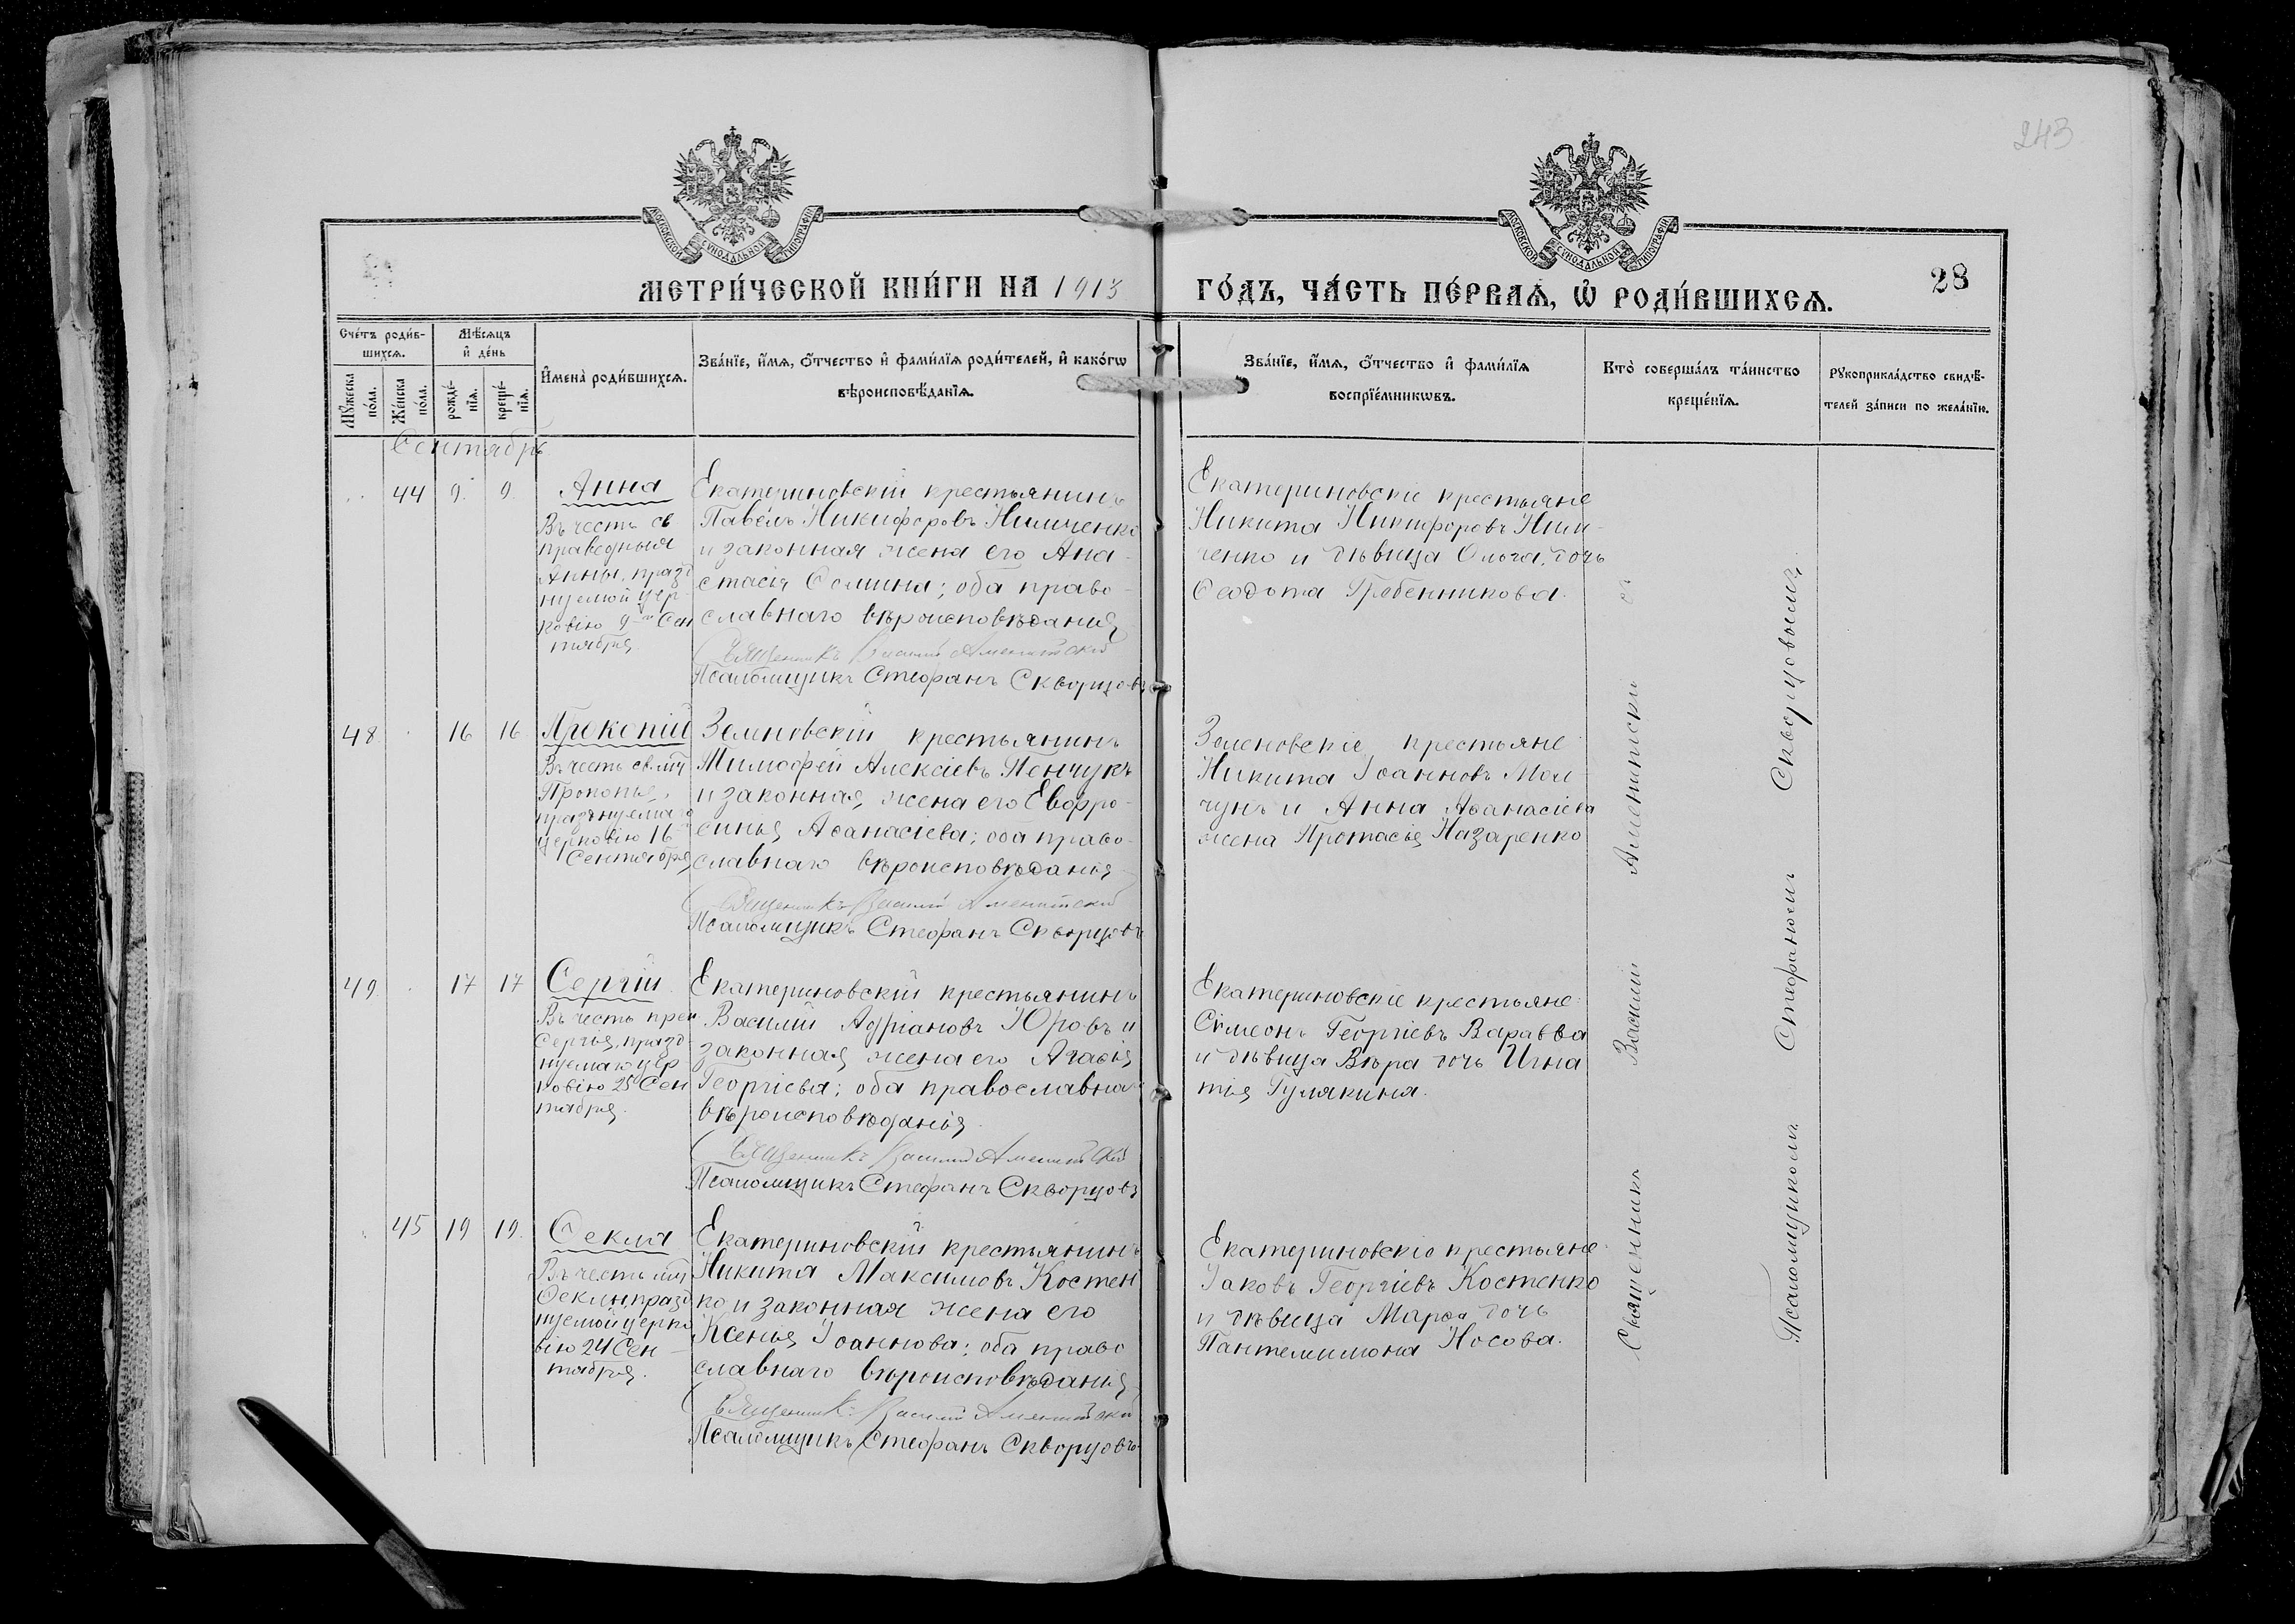 243
МОСКОВСКОЙ СѴНОДАЛЬНОЙ ТИПОГРАФІИ
МОСКОВСКОЙ СѴНОДАЛЬНОЙ ТИПОГРАФІИ
МЕТРИ́ЧЕСКОЙ КНИ́ГИ НА 1913
ГО́ДЪ, ЧА́СТЬ ПЕ́РВАѦ, Ѡ҆ РОДИ́ВШИХСѦ.
28
Сче́тъ роди́в-
шихсѧ.
Мѣ́сѧцъ
и҆ де́нь
Мꙋ́жеска
по́ла.
Же́нска
по́ла.
рожде́-
нїѧ.
креще́-
нїѧ.
И҆мена̀ роди́вшихсѧ.
Зва́нїе, и҆́мѧ, ѻ҆́тчество и҆ фами́лїѧ роди́телей, и҆ како́гѡ
вѣроисповѣ́данїѧ.
Зва́нїе, и҆́мѧ, ѻ҆́тчество и҆ фами́лїѧ
воспрїе́мникѡвъ.
Кто̀ соверша́лъ та́инство
креще́нїѧ.
Рꙋкоприкла́дство свидѣ́-
телей за́писи по жела́нїю.
Сентябрь
44 9. 9.
Анна
Въ честь св
праведныя
Анны, празд
нуемой цер
ковію 9-го Сен
тября.
Екатериновскій крестьянинъ
Павелъ Никифоровъ Нимченко
и законная жена его Ана-
стасія Ѳомина; оба право-
славнаго вѣроисповѣданія
Священникъ Василій Аменитскій
Псаломщикъ Стефанъ Скворцовъ
Екатериновскіе крестьяне
Никита Никифоровъ Ним-
ченко и дѣвица Ольга, дочь
Ѳеодота Гребенникова.
48 16 16
Прокопій
Въ честь св. муч
Прокопія,
празднуемаго
церковію 16
Сентября
крестьянинъ
Тимофей Алексіевъ Пенчукъ
и законная жена его Евфро-
синія Аѳанасіева; оба право-
славнаго вѣроисповѣданія
Священникъ Василій Аменитскій
Псаломщикъ Стефанъ Скворцовъ
крестьяне
Никита Іоанновъ Мол
чунъ и Анна Аѳанасіева
жена Протасія Назаренко
49 17 17
Сергій
Въ честь преп
Сергія, празд
нуемаго цер
ковію 25 Сен
тября.
Екатериновскій крестьянинъ
Василій Адріановъ Юровъ и
законная жена его Агафія
Георгіева; оба православна
вѣроисповѣданія.
Священникъ Василій Аменитскій
Псаломщикъ Стефанъ Скворцовъ
Екатериновскіе крестьяне
Симеонъ Георгіевъ Варавва
и дѣвица Вѣра дочь Игна
тія Гулякина.
45 19 19.
Ѳекла
Въ честь муч
Ѳеклы, празд
нуемой церко
вію 24 Сен-
тября.
Екатериновскій крестьянинъ
Никита Максимовъ Костен
ко и законная жена его
Ксенія Іоаннова; оба право
славнаго вѣроисповѣданія
Священникъ Василій Аменитскій
Псаломщикъ Стефанъ Скворцовъ
Екатериновскіе крестьяне
Іаковъ Георгіевъ Костенко
и дѣвица Марѳа дочь
Пантелимона Носова.
Священникъ Василій Аменитскій съ
Псаломщикомъ Стефаномъ Скворцовымъ